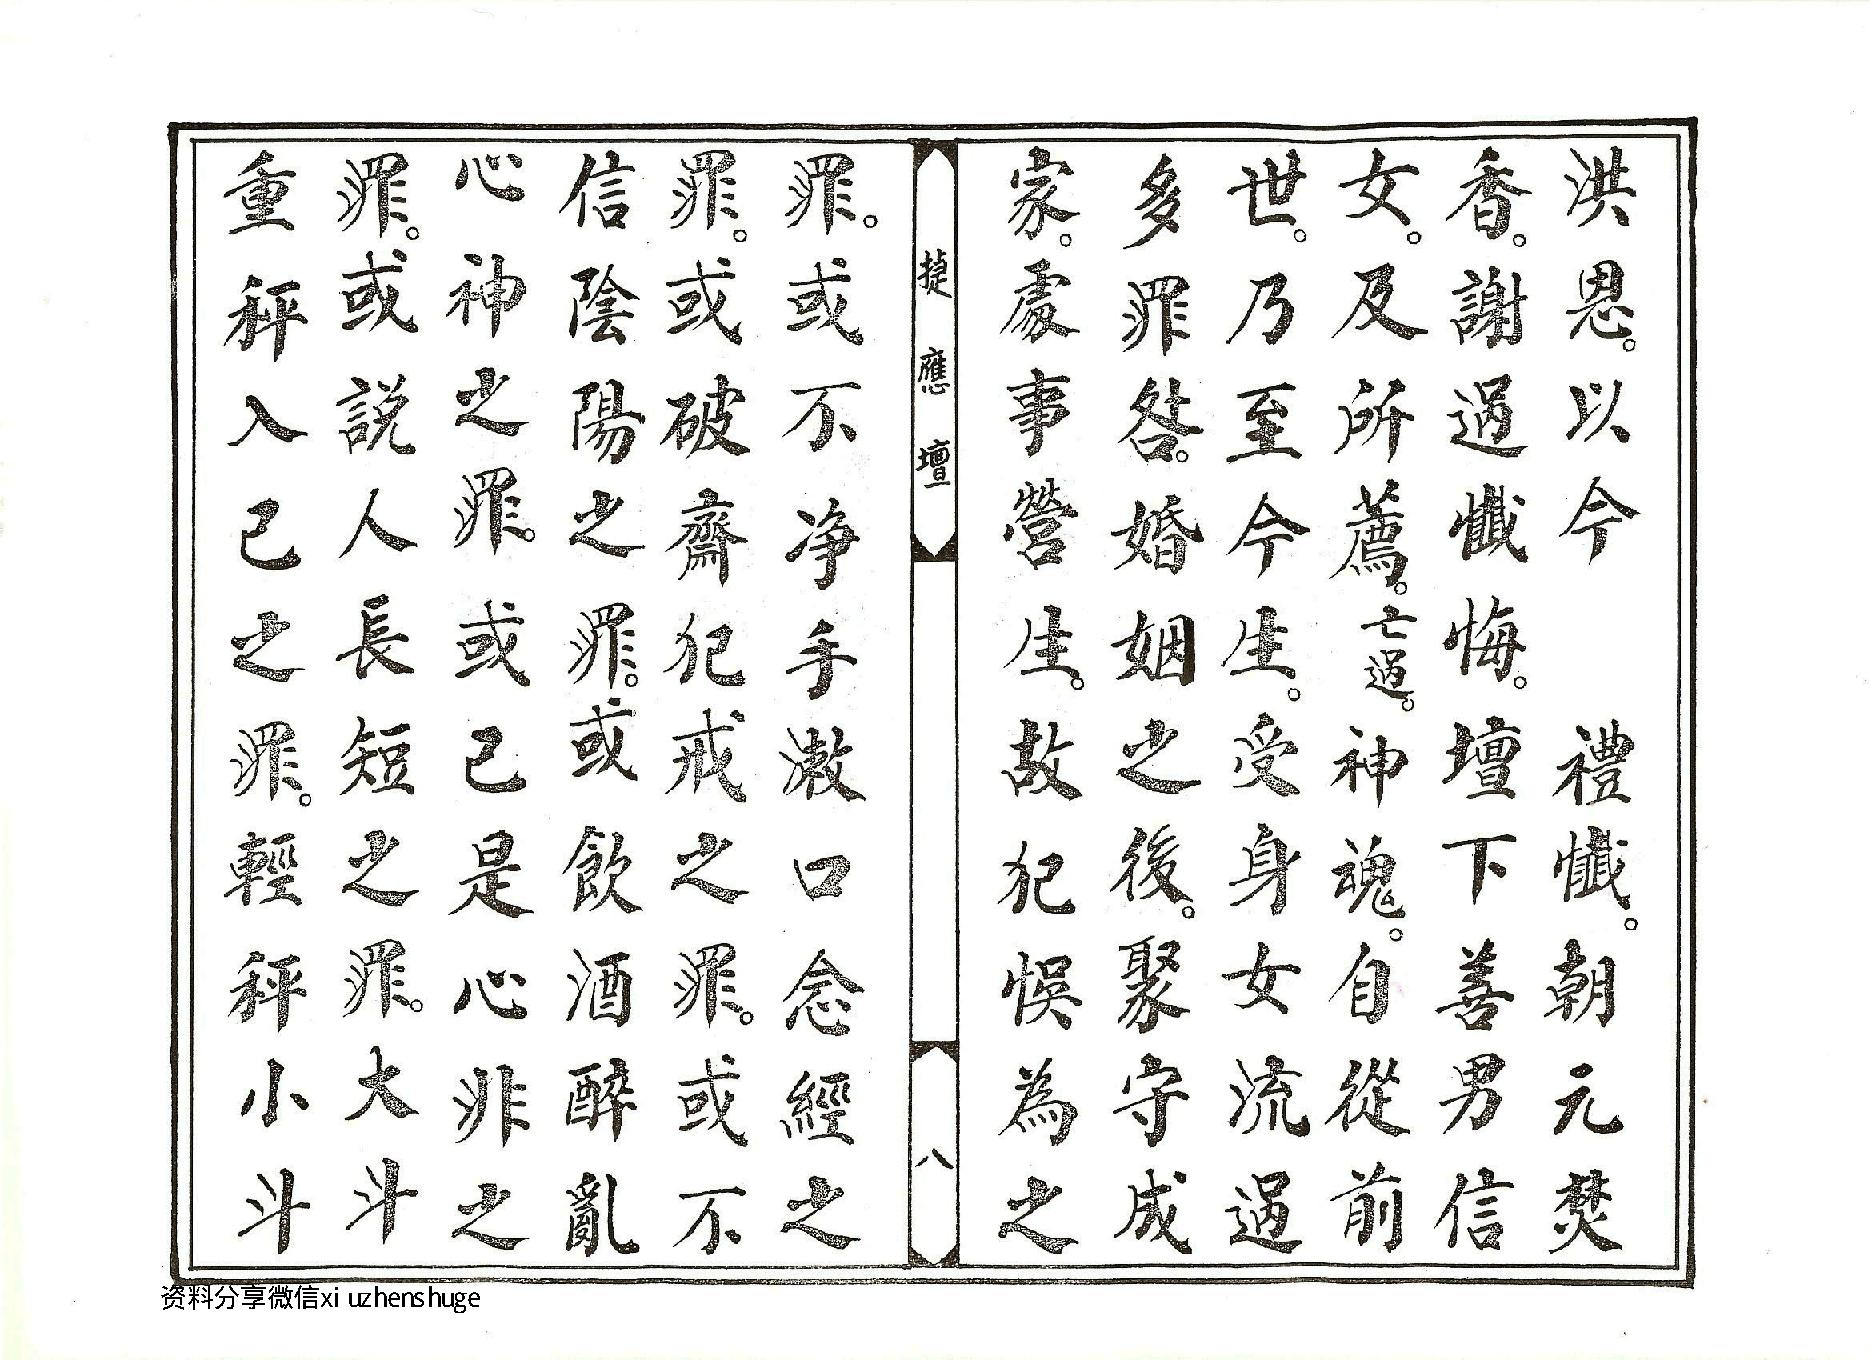 洪恩。以今　禮懺。朝元焚
香。謝過懺悔。壇下善男信
女。及所薦。亡過。神魂。自從前
世。乃至今生。受身女流過
多罪咎。婚姻之後。聚守成
家。處事營生。故犯悞為之
捷應壇
八
罪。或不净手漱口念經之
罪。或破齋犯戒之罪。或不
信陰陽之罪。或飲酒醉亂
心神之罪。或己是心非之
罪。或説人長短之罪。大斗
重秤入己之罪。輕秤小斗
资料分享微信xiuzhenshuge